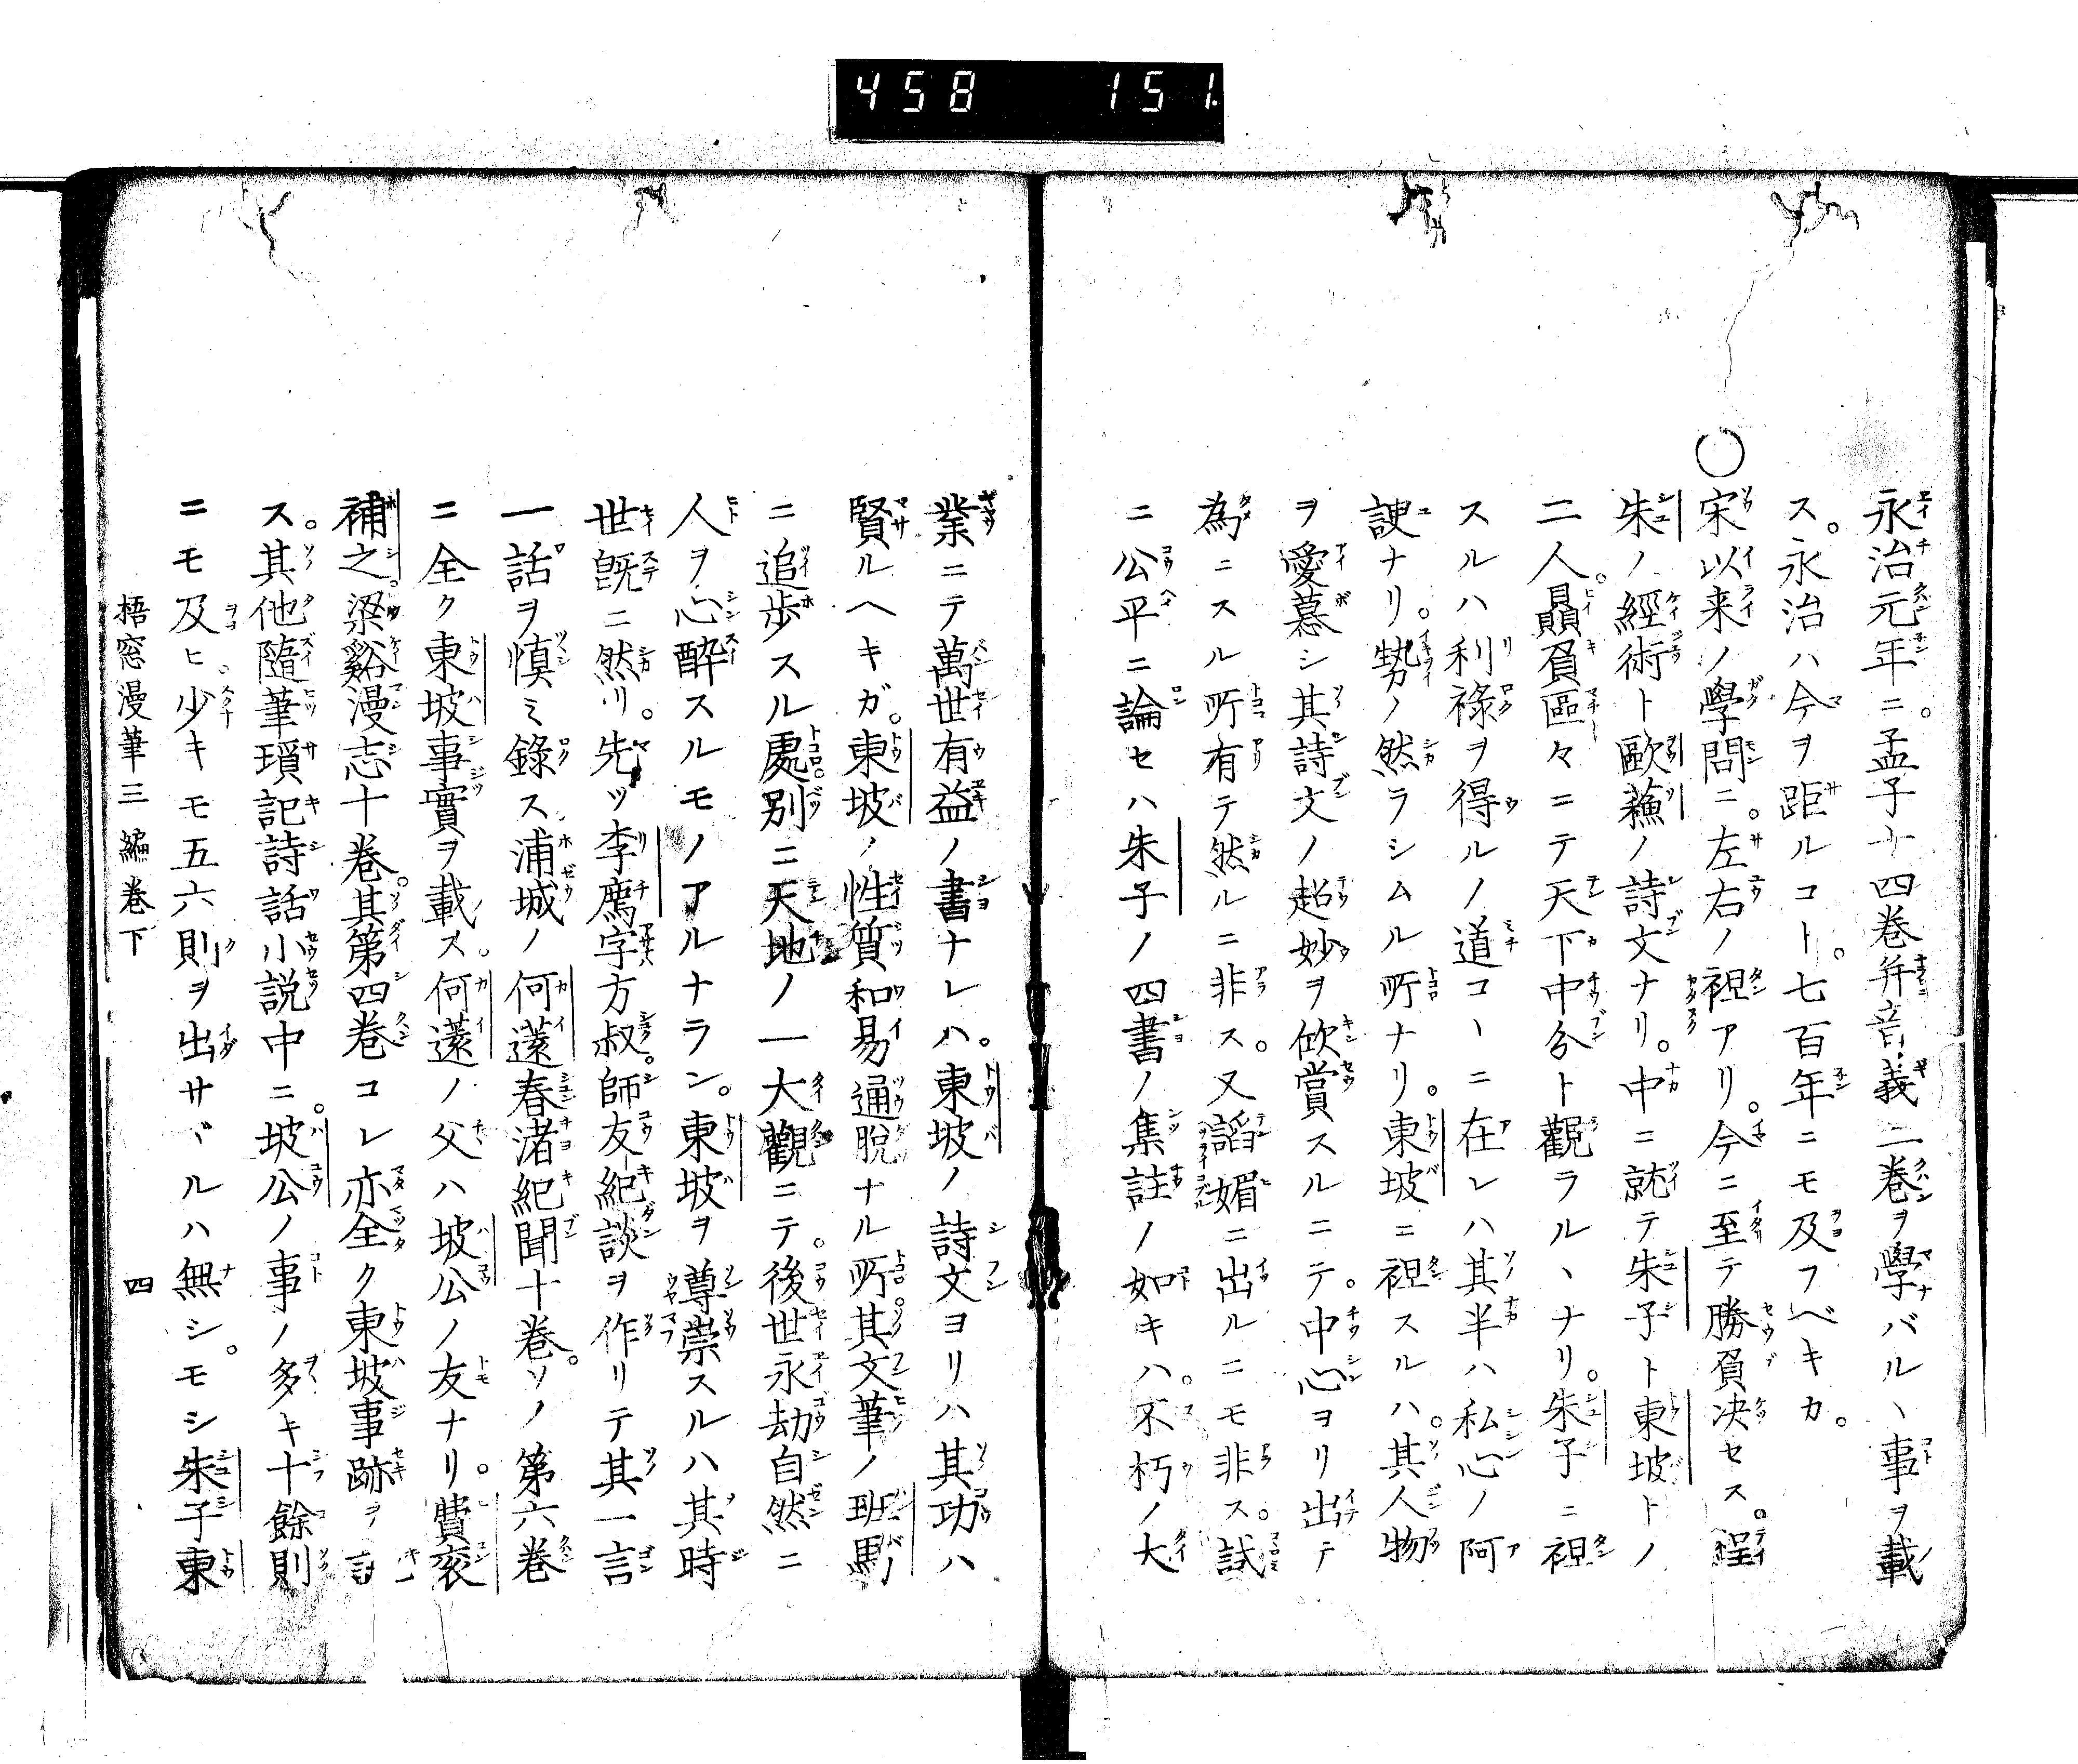 458 151
永治元年ニ。孟子十四巻并音義二巻ヲ學バル丶事ヲ載
ス。永治ハ今ヲ距ルコト。七百年ニモ及フベキカ。
○宋以来ノ學問ニ。左右ノ袒アリ。今ニ至テ勝負决セス。程
朱ノ經術ト歐蘓ノ詩文ナリ。中ニ就テ朱子ト東坡トノ
二人。贔負區々ニテ天下中分ト觀ラル丶ナリ。朱子ニ袒
スルハ利祿ヲ得ルノ道コ丶ニ在レハ其半ハ私心ノ阿
諛ナリ。勢ノ然ラシムル所ナリ。東坡ニ袒スルハ。其人物
ヲ愛慕シ其詩文ノ超妙ヲ欣賞スルニテ。中心ヨリ出テ
為ニスル所有テ然ルニ非ス。又謟媚ニ出ルニモ非ス。試
ニ公平ニ論セハ朱子ノ四書ノ集註ノ如キハ。不朽ノ大
業ニテ萬世有益ノ書ナレハ。東坡ノ詩文ヨリハ其功ハ
賢ルヘキガ。東坡ノ性質和易通脫ナル所。其文筆ノ班馬
ニ追歩スル處。別ニ天地ノ一大觀ニテ。後世永劫自然ニ
人ヲ心醉スルモノアルナラン。東坡ヲ尊崇スルハ其時
世既ニ然リ。先ツ李廌字方叔。師友紀談ヲ作リテ其一言
一話ヲ慎ミ錄ス浦城ノ何薳春渚紀聞十巻。ソノ第六巻
ニ全ク東坡事實ヲ載ス。何薳ノ父ハ坡公ノ友ナリ。費袞
補之。梁谿漫志十巻。其第四巻コレ亦全ク東坡事跡ヲ記
ス。其他隨筆瑣記詩話小説中ニ。坡公ノ事ノ多キ十餘則
ニモ及ヒ。少キモ五六則ヲ出サヾルハ無シ。モシ朱子東
梧窓漫筆三編巻下 四